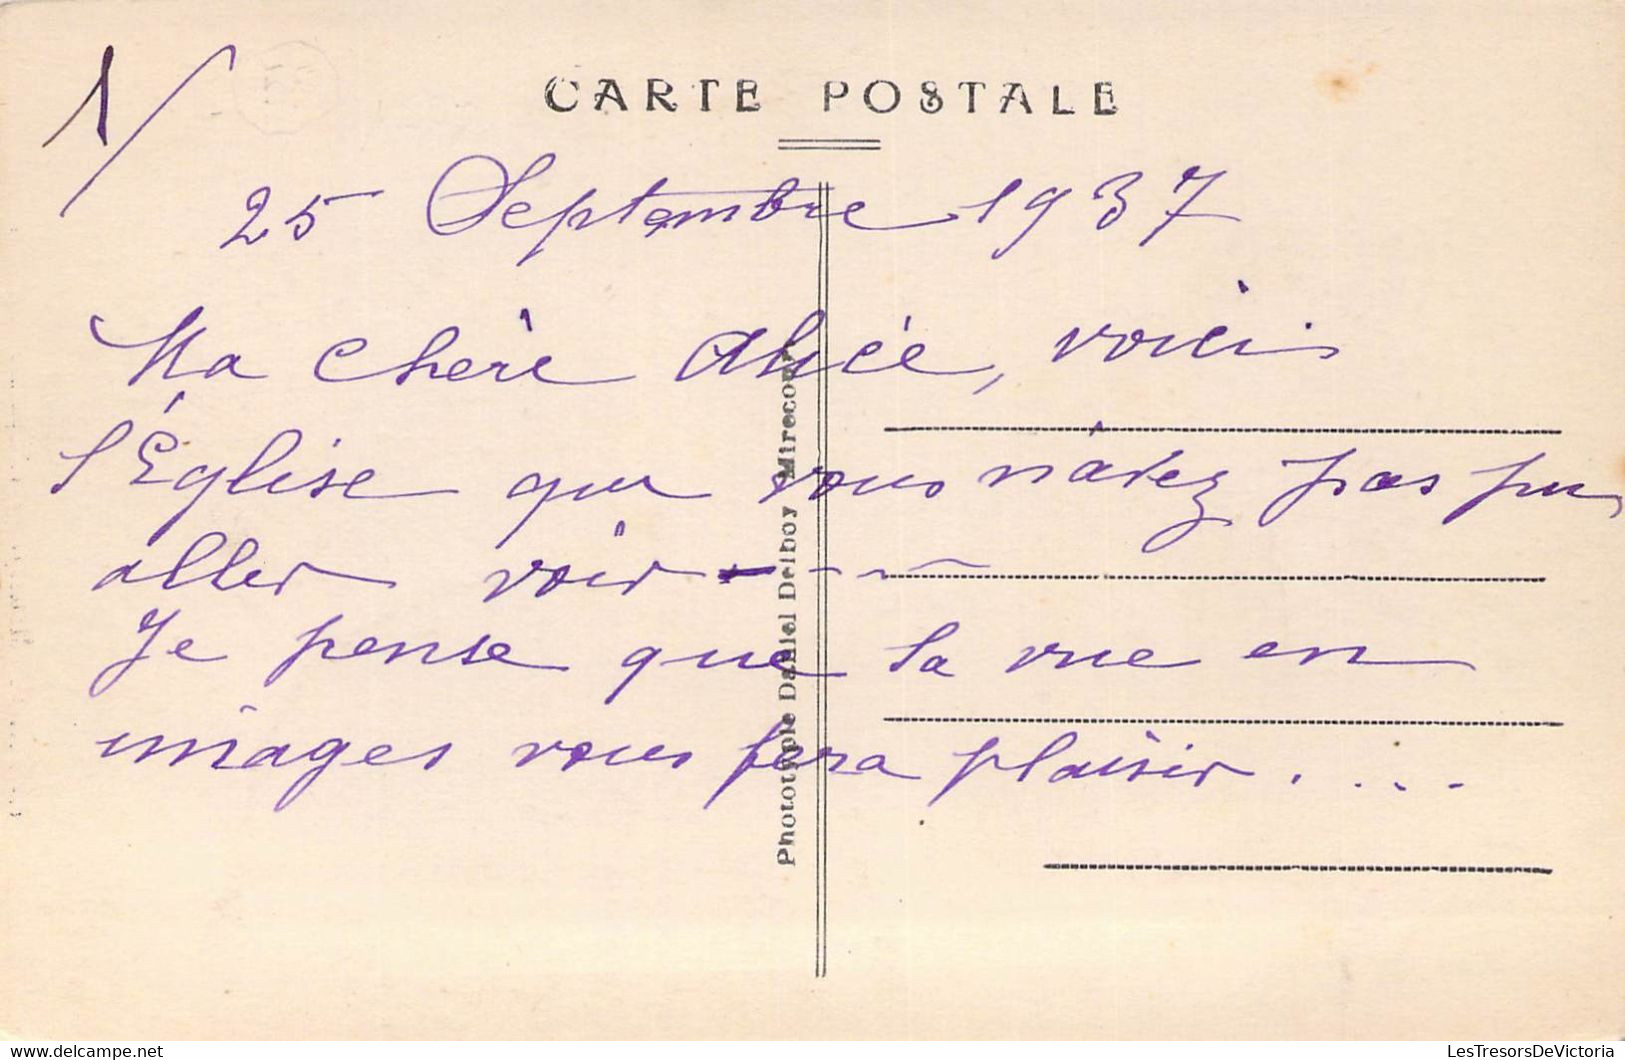 1/
CARTE POSTALE
25 Septembre 1937
Ma chère Alice, voici
l'Église que vous n'avez pas pu
aller voir - - -
Je pense que la vue en
images vous fera plaisir. ...
Phototypie Daniel Delboy Mirecourt
LesTresorsDeVictoria